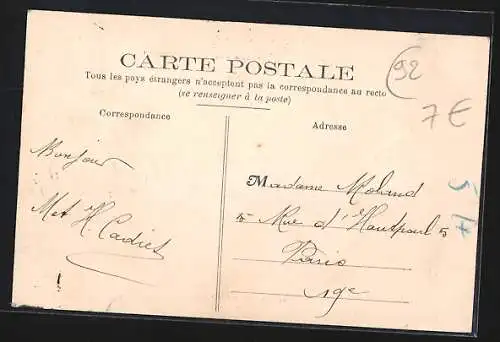 CARTE POSTALE
Tous les pays étrangers n'acceptent pas la correspondance au recto
(se renseigner à la poste)
92
7€
Correspondance
Adresse
Bonjour
H. Cadiet
Madame
Rue d'Hautpoul 5
Paris
19e
5